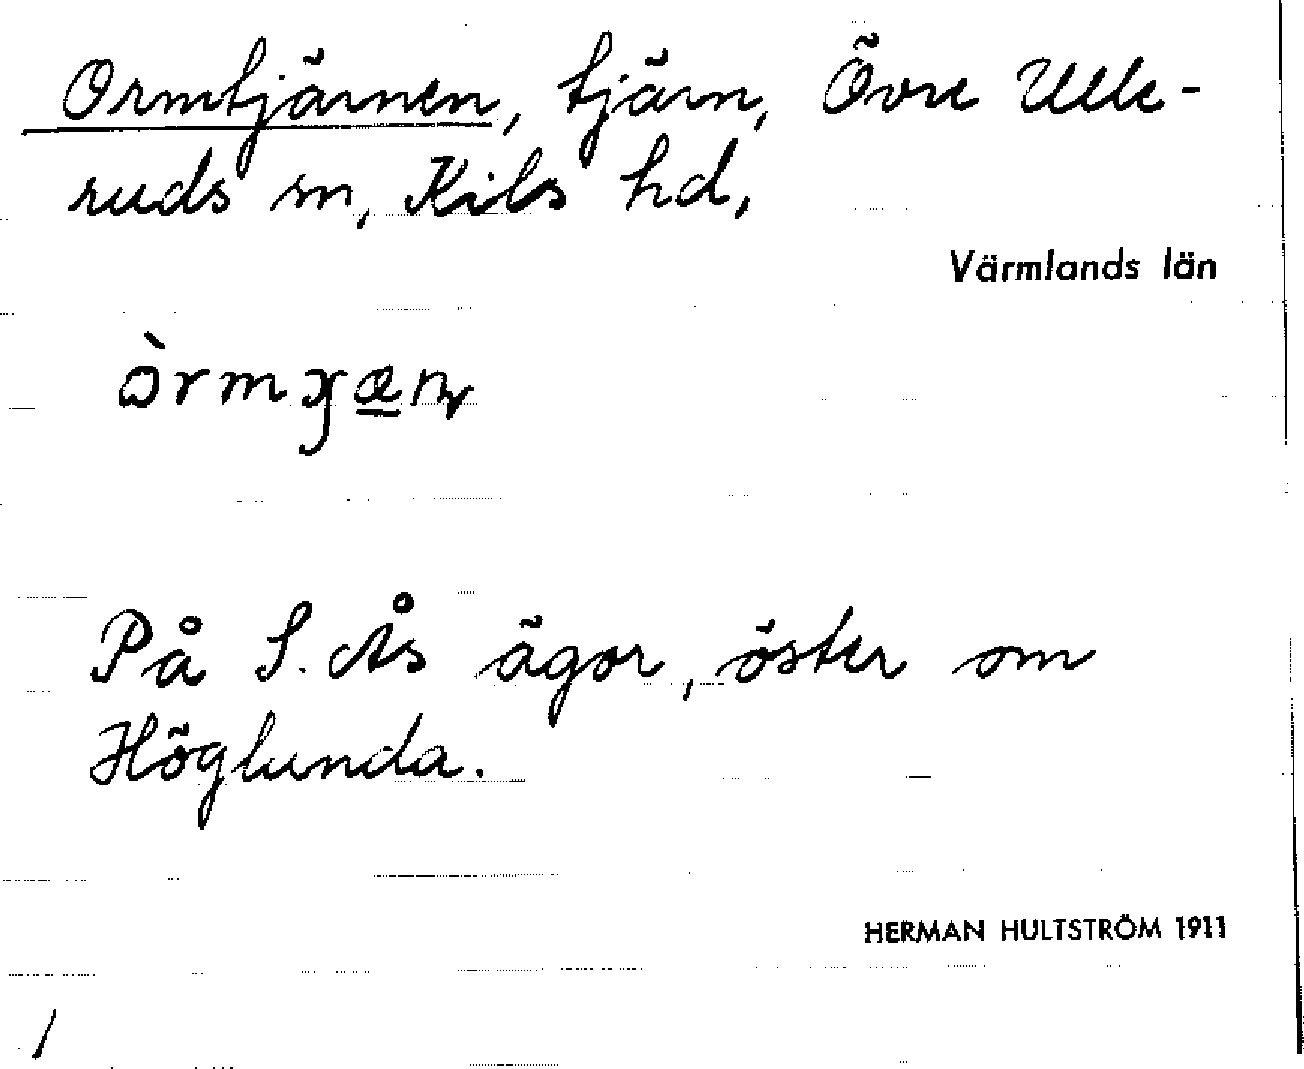 Ormtjärnen, tjärn, Övre Ulle-
ruds sn, Kils hd,
Värmlands län
På S. Ås ägor, öster om
Höglunda.
HERMAN HULTSTRÖM 1911
/